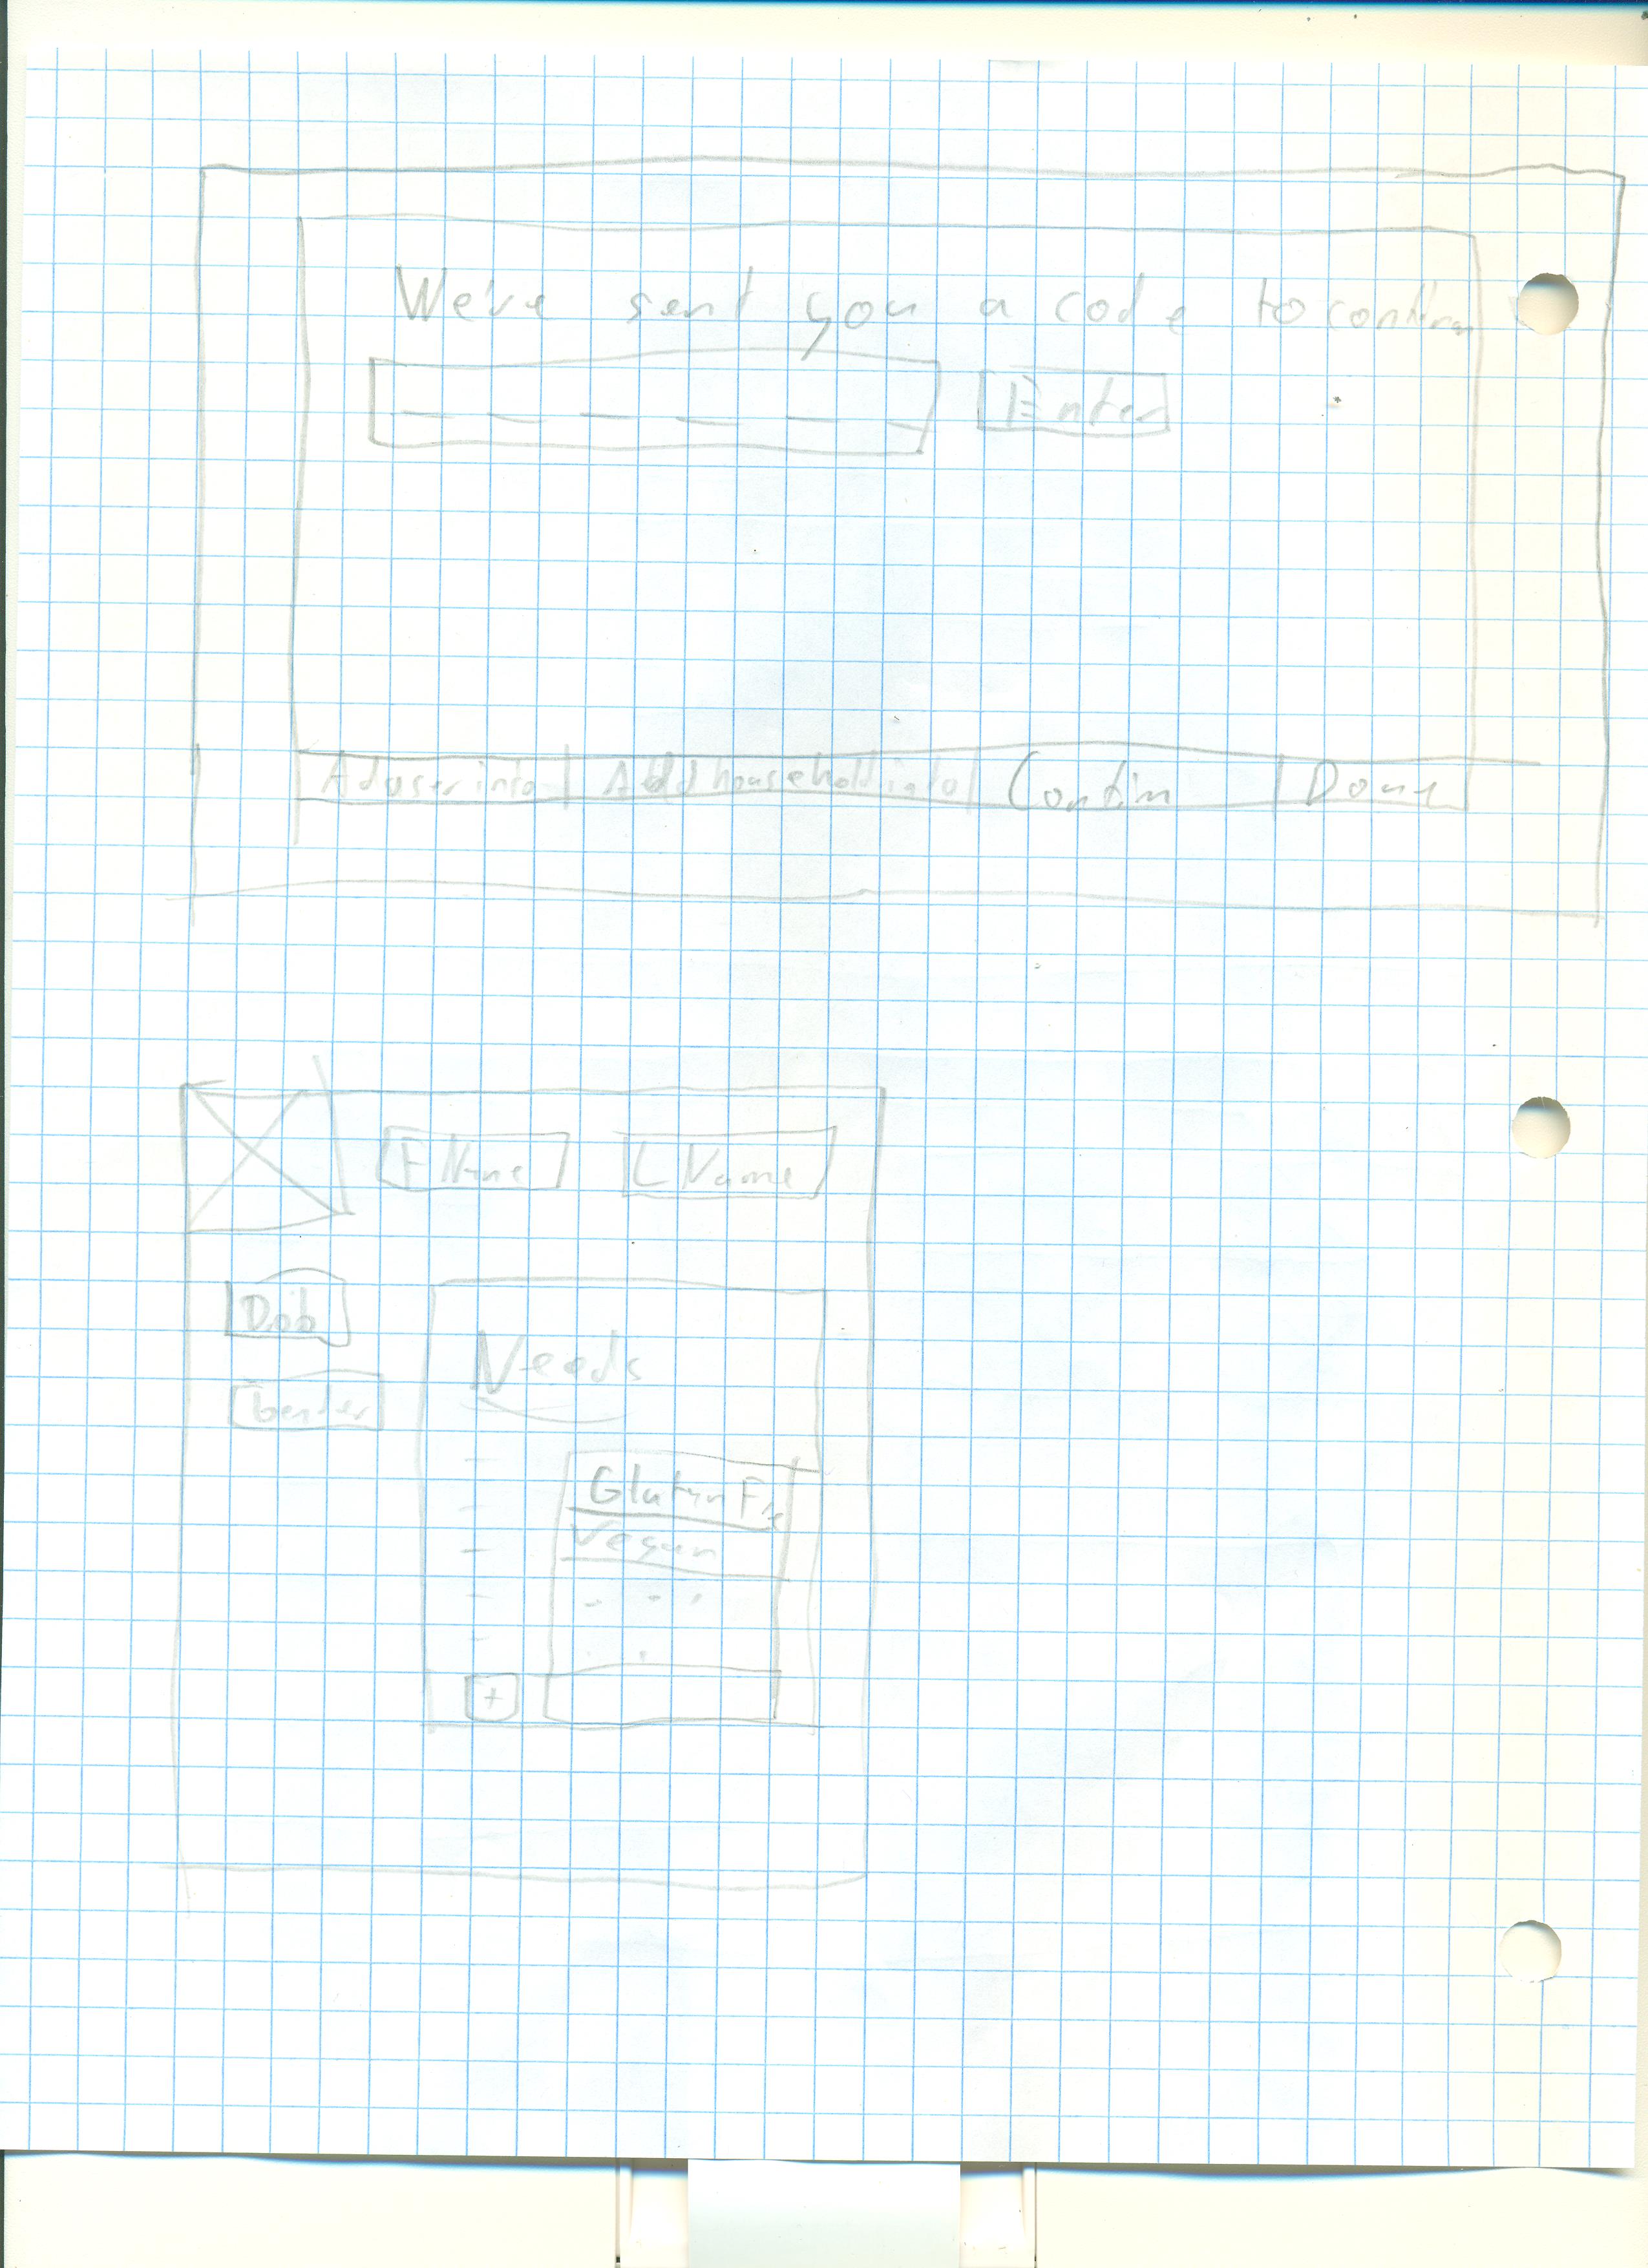 We've sent you a code to confirm
Enter
Ad user info Add household info Confirm Done
F Name L Name
Dob
Needs
Gender
Gluten Fre
Vegan
+